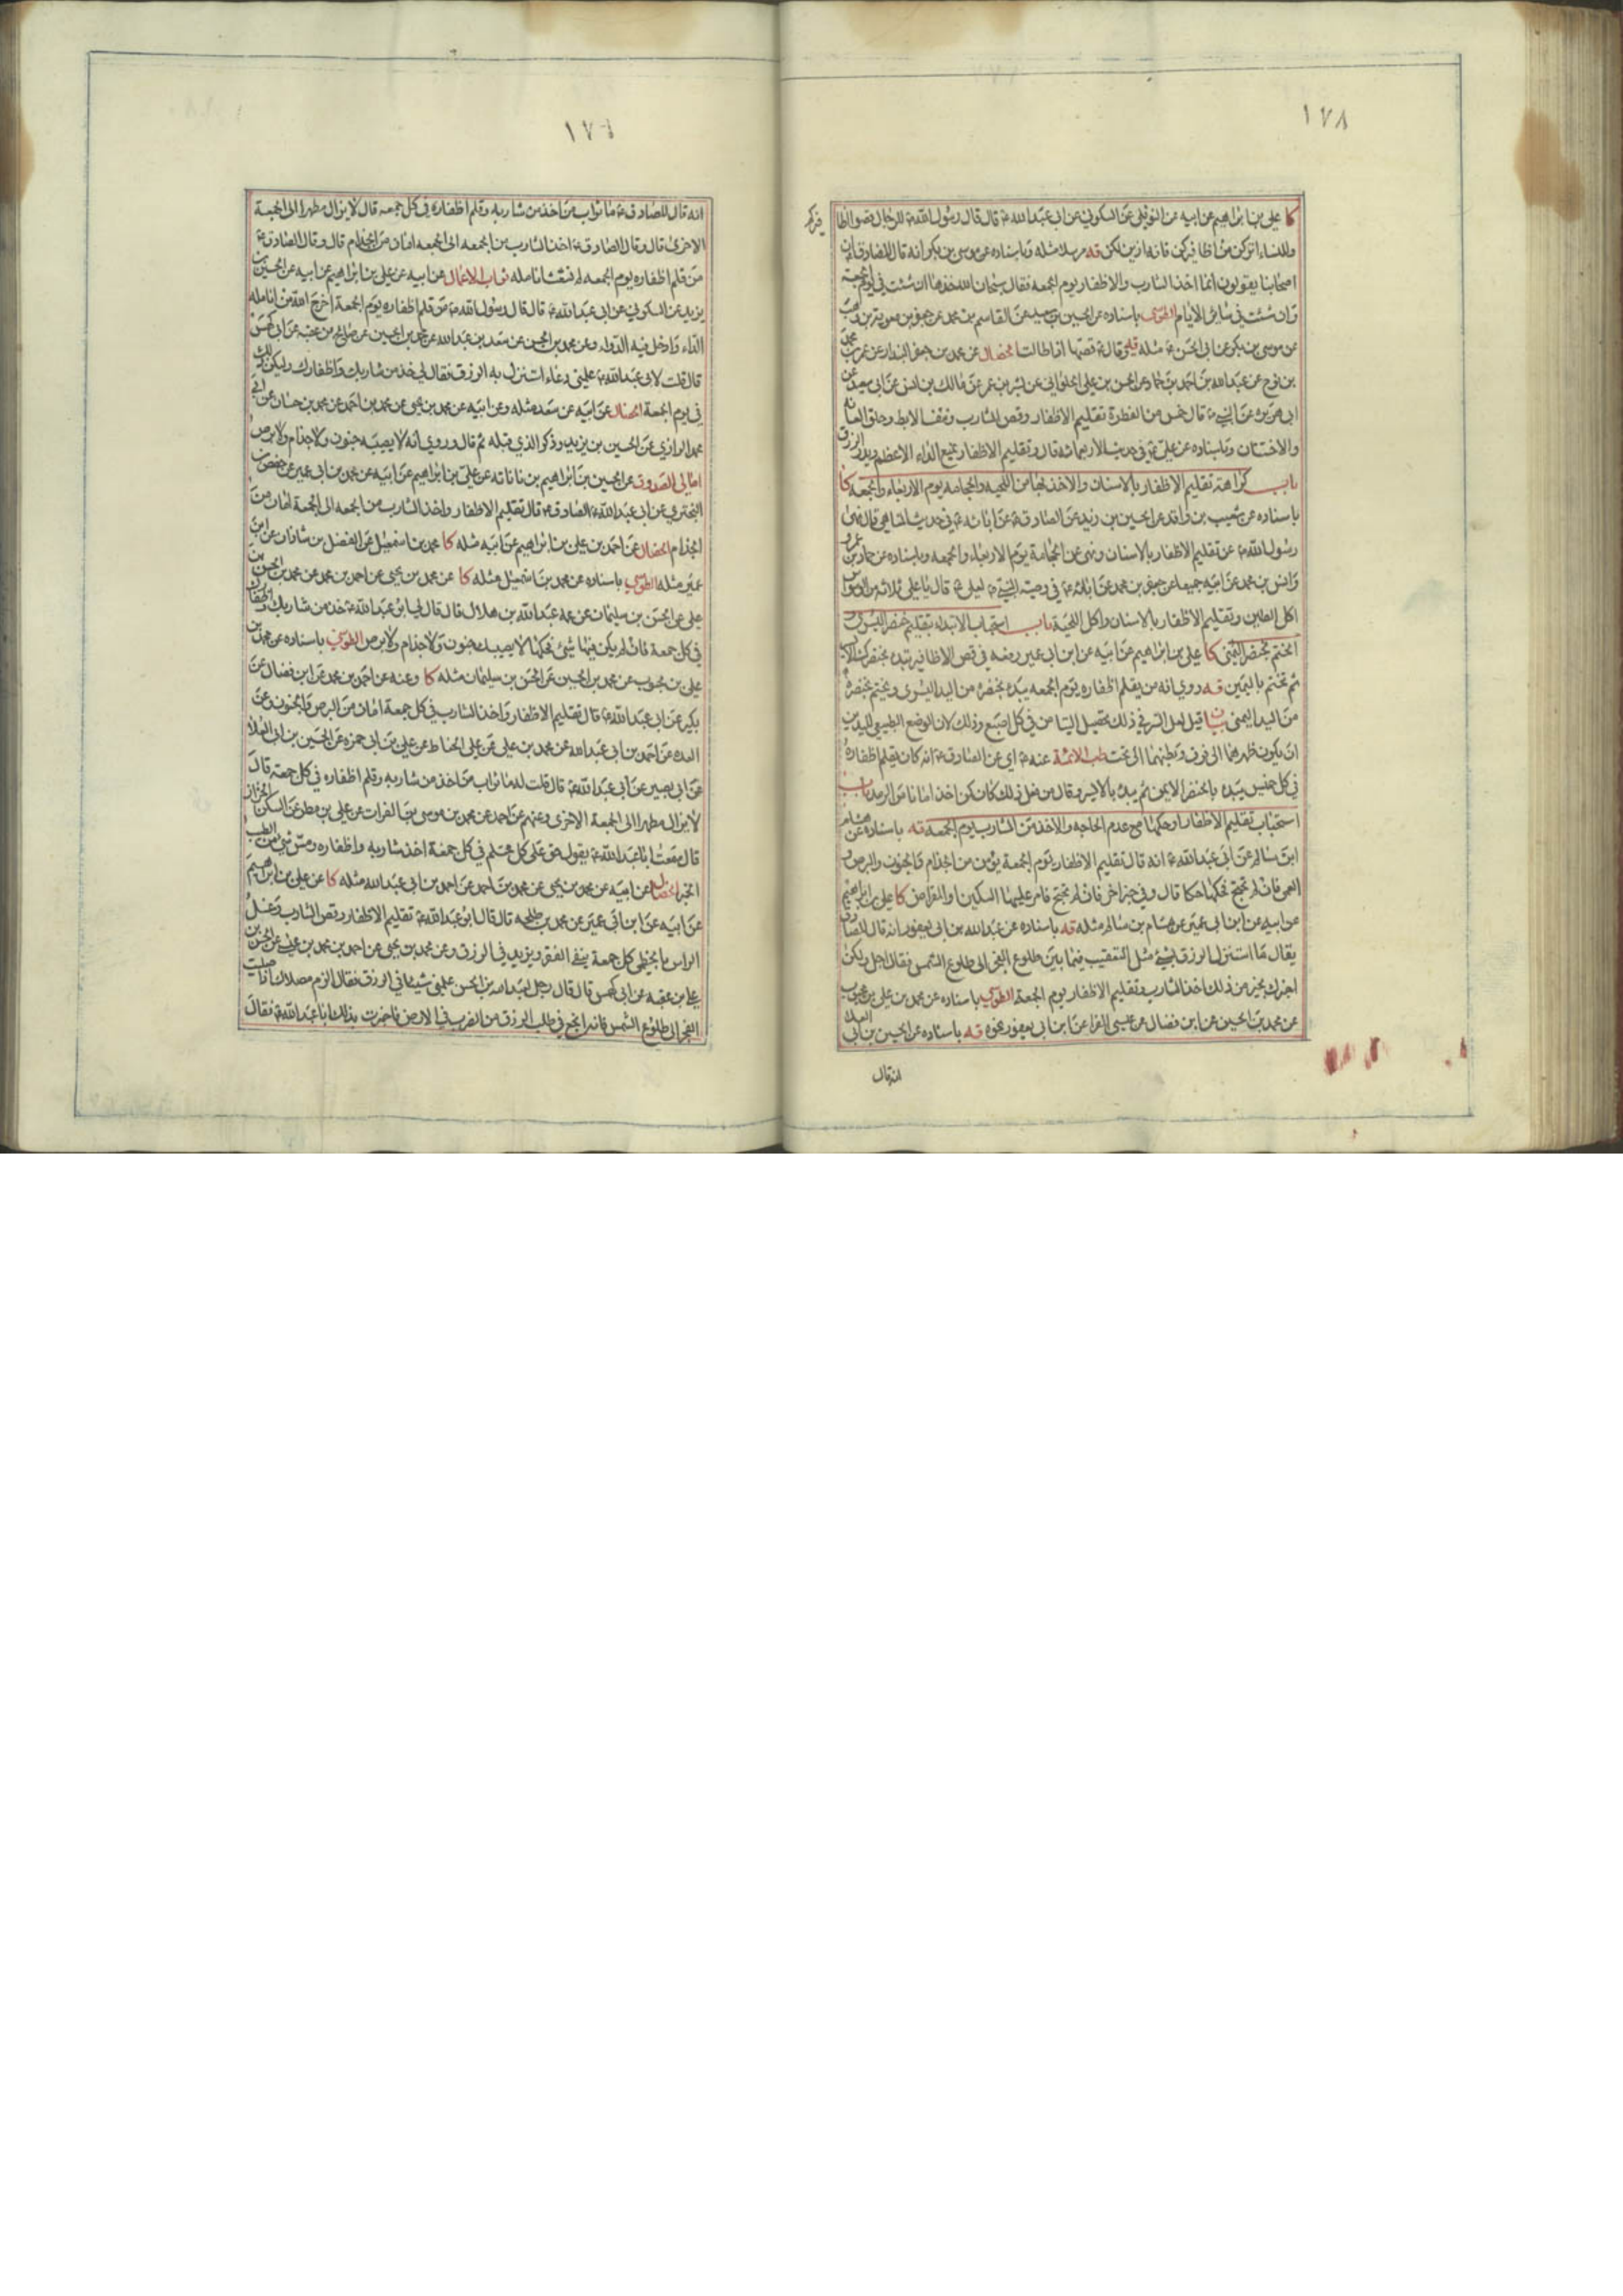 ١٧٨
كا علي بن ابراهيم عن ابيه عن النوفلي عن السكوني عن ابي عبد الله ع قال قال رسول الله ص للرجال قصوا اظا
فيركم
وللنساء اتركن من اظافيركن فانه ازين لكن قه مرسلا مثله وباسناده عن موسى بن بكر انه قال للصادق ع ان
اصحابنا يقولون انما اخذ الشارب والاظفار يوم الجمعه فقال سبحان الله خذها ان شئت في يوم الجمعة
وان شئت في سائر الايام الطوسي باسناده عن الحسين بن سعيد عن القاسم بن محمد عن جعفر بن معوية بن وهب
عن موسى بن بكر عن ابي الحسن ع مثله قه وقال ع قصها اذا طالت الخصال عن محمد بن جعفر البندار عن
بن نوح عن عبد الله بن احمد بن حماد عن الحسن بن علي الحلواني عن بشر بن عمر عن مالك بن انس عن ابي سعيد عن
ابي هريرة عن النبي ص قال خمس من الفطرة تقليم الاظفار وقص الشارب ونتف الابط وحلق العانه
والاختتان وباسناده عن علي ع في حديث الاربعمائه قال وتقليم الاظفار يمنع الداء الاعظم ويدر الرزق
باب كراهة تقليم الاظفار بالاسنان والاخذ بها من اللحيه والحجامه يوم الاربعاء والجمعه كا
باسناده عن شعيب بن واقد عن الحسين بن زيد عن الصادق ع عن ابائه ع في حديث المناهي قال نهى
رسول الله ص عن تقليم الاظفار بالاسنان ونهى عن الحجامة يوم الاربعاء والجمعه وباسناده عن حماد بن عمرو
وانس بن محمد عن ابيه جميعا عن جعفر بن محمد عن ابائه ع في وصية النبي ص لعلي ع قال يا علي ثلاثه من الوسواس
اكل الطين وتقليم الاظفار بالاسنان واكل اللحية باب استحباب الابتداء بتقليم خنصر اليسرى و
الختم بخنصر اليمنى كا علي بن ابراهيم عن ابيه عن ابن ابي عمير رفعه في قص الاظافير تبدء بخنصرك الايسر
ثم تختم باليمين قه روي انه من يقلم اظفاره يوم الجمعه يبدء بخنصره من اليد اليسرى ويختم بخنصره
من اليد اليمنى بيان قيل لعل السر في ذلك تحصيل التيامن في كل اصبع وذلك لان الوضع الطبيعي لليدين
ان يكون ظهرهما الى فوق وبطنهما الى تحت طب الائمة عنه ع اي عن الصادق ع انه كان يقلم اظفاره
في كل خميس يبدء بالخنصر الايمن ثم يبدء بالايسر وقال من فعل ذلك كان كمن اخذ امانا من الرمد باب
استحباب تقليم الاظفار او حكها مع عدم الحاجه والاخذ من الشارب يوم الجمعه قه باسناده عن هشام
ابن سالم عن ابي عبد الله ع انه قال تقليم الاظفار يوم الجمعة يؤمن من الجذام والجنون والبرص و
العمى فان لم تحتج فحكها حكا قال وفي خبر اخر فان لم تحتج فامر عليها السكين او المقراض كا علي بن ابراهيم
عن ابيه عن ابن ابي عمير عن هشام بن سالم مثله قه باسناده عن عبد الله بن ابي يعفور انه قال للصادق
يقال ما استنزل الرزق بشئ مثل التعقيب فيما بين طلوع الفجر الى طلوع الشمس فقال اجل ولكن
اخبرك بخير من ذلك اخذ الشارب وتقليم الاظفار يوم الجمعة الطوسي باسناده عن محمد بن علي بن محبوب
عن محمد بن الحسين عن ابن فضال عن عيسى الفرا عن ابن ابي يعفور نحوه قه باسناده عن الحسين بن ابي العلا
انه قال
انه قال للصادق ع ما ثواب من اخذ من شاربه وقلم اظفاره في كل جمعه قال لا يزال مطهرا الى الجمعة
الاخرى قال وقال الصادق ع اخذ الشارب من الجمعه الى الجمعه امان من الجذام قال وقال الصادق ع
من قلم اظفاره يوم الجمعه لم تشعث انامله ثواب الاعمال عن ابيه عن علي بن ابراهيم عن ابيه عن الحسين بن
يزيد عن السكوني عن ابي عبد الله ع قال قال رسول الله ص من قلم اظفاره يوم الجمعة اخرج الله من انامله
الداء وادخل فيه الدواء وعن محمد بن الحسن عن سعد بن عبد الله عن محمد بن الحسين عن صالح بن عقبه عن ابي كهمس
قال قلت لابي عبد الله ع علمني دعاء استنزل به الرزق فقال لي خذ من شاربك واظفارك وليكن ذلك
في يوم الجمعة الخصال عن ابيه عن سعد مثله وعن ابيه عن محمد بن يحيى عن محمد بن احمد عن محمد بن حسان عن ابي
محمد الرازي عن الحسين بن يزيد وذكر الذي قبله ثم قال وروي انه لا يصيبه جنون ولا جذام ولا برص
امالي الصدوق عن الحسين بن ابراهيم بن ناتانه عن علي بن ابراهيم عن ابيه عن محمد بن ابي عمير عن حفص بن
البختري عن ابي عبد الله الصادق ع قال تقليم الاظفار واخذ الشارب من الجمعه الى الجمعة امان من
الجذام الخصال عن احمد بن علي بن ابراهيم عن ابيه مثله كا محمد بن اسمعيل عن الفضل بن شاذان عن ابن
عمير مثله الطوسي باسناده عن محمد بن اسمعيل مثله كا عن محمد بن يحيى عن احمد بن محمد عن محمد بن الحسن بن
علي عن الحسن بن سليمان عن عمه عبد الله بن هلال قال قال لي ابو عبد الله ع خذ من شاربك واظفارك
في كل جمعة فان لم يكن فيها شئ فحكها لا يصيبك جنون ولا جذام ولا برص الطوسي باسناده عن محمد بن
علي بن محبوب عن محمد بن الحسين عن الحسن بن سليمان مثله كا وعنه عن احمد بن محمد عن ابن فضال عن
بكير عن ابي عبد الله ع قال تقليم الاظفار واخذ الشارب في كل جمعة امان من البرص والجنون وعن
العده عن احمد بن ابي عبد الله عن محمد بن علي عن علي الحناط عن علي بن ابي حمزه عن الحسين بن ابي العلا
عن ابي بصير عن ابي عبد الله ع قال قلت له ما ثواب من اخذ من شاربه وقلم اظفاره في كل جمعة قال
لا يزال مطهرا الى الجمعة الاخرى وعنهم عن احمد عن محمد بن موسى بن الفرات عن علي بن مطر عن السكن الخزاز
قال سمعت ابا عبد الله ع يقول حق على كل محتلم في كل جمعة اخذ شاربه واظفاره ومس شئ من الطيب
الخبر الخصال عن ابيه عن محمد بن يحيى عن محمد بن احمد عن احمد بن ابي عبد الله مثله كا عن علي بن ابراهيم
عن ابيه عن ابن ابي عمير عن محمد بن طلحه قال قال ابو عبد الله ع تقليم الاظفار وقص الشارب وغسل
الراس بالخطمي كل جمعة ينفي الفقر ويزيد في الرزق وعن محمد بن يحيى عن احمد بن محمد بن عيسى عن الحسن بن
علي بن عقبه عن ابي كهمس قال قال رجل لعبد الله بن الحسن علمني شيئا في الرزق فقال الزم مصلاك اذا صليت
الفجر الى طلوع الشمس فانه انجع في طلب الرزق من الضرب في الارض فاخبرت بذلك ابا عبد الله ع فقال